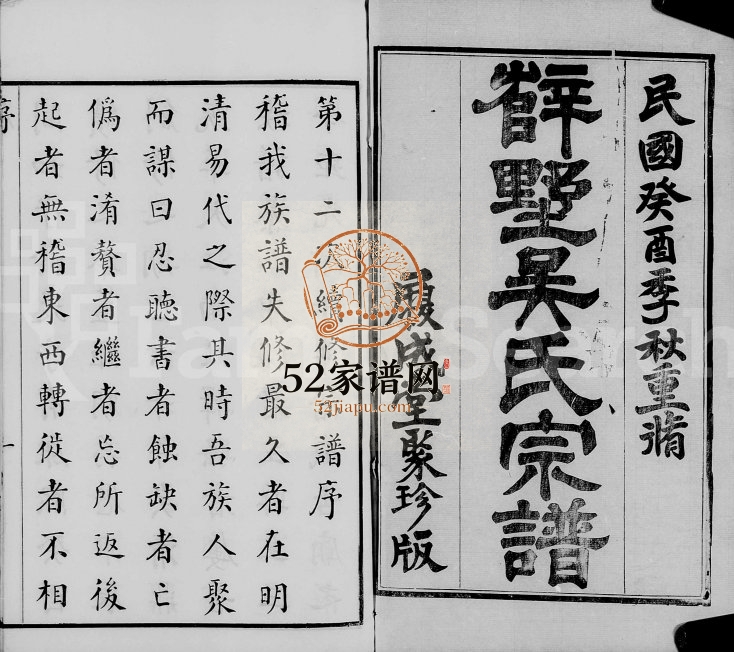 民國癸酉季秋重脩
薛墅吳氏宗譜
成堂聚珍版
第十二次續修宗譜序
稽我族譜失修最久者在明
清易代之際其時吾族人聚
而謀曰忍聽書者蝕缺者亡
僞者淆贅者繼者忘所返後
起者無稽東西轉徙者不相
序
一
52家谱网
52jiapu.com